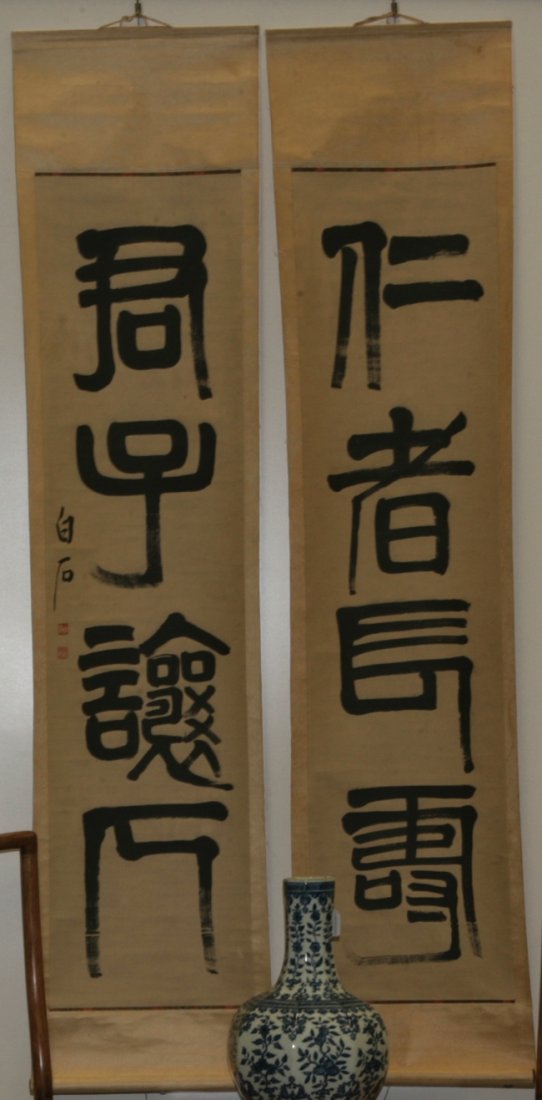 仁者長壽
君子讓
白石